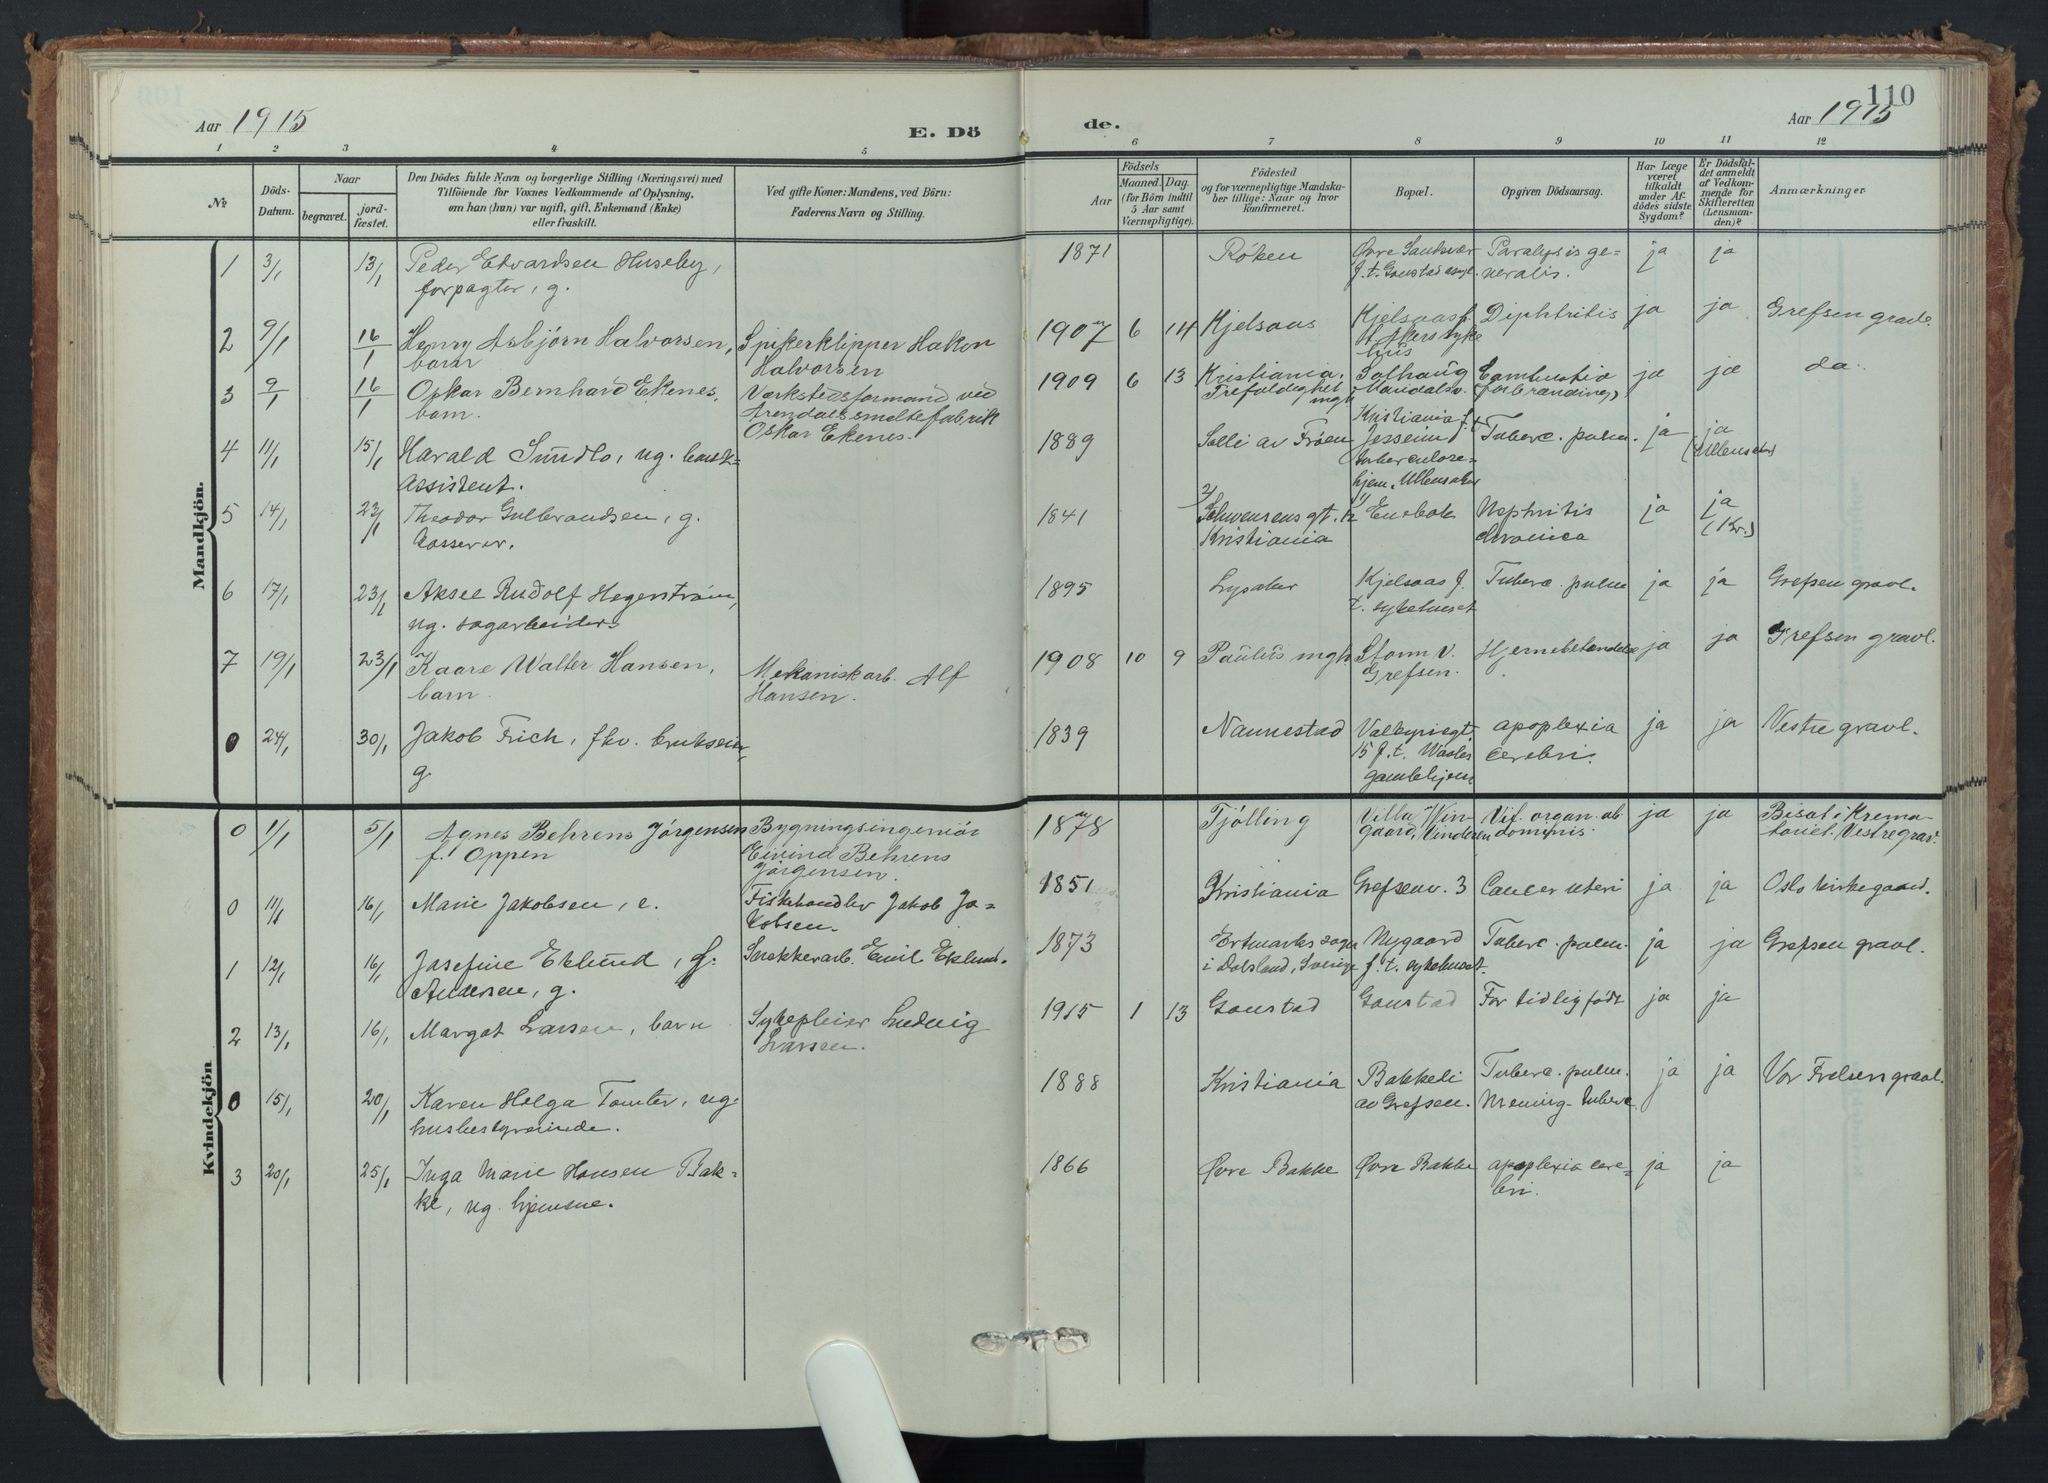 110
Aar 1915
E. Dö
de.
Aar 1915
1 2 3 4 5 6 7 8 9 10 11 12
№
Döds-
Datum.
Naar
begravet.
jord-
fæstet.
Den Dödes fulde Navn og borgerlige Stilling (Næringsvei) med
Tilföiende for Voxnes Vedkommende af Oplysning,
om han (hun) var ugift, gift, Enkemand (Enke)
eller fraskilt.
Ved gifte Koner: Mandens, ved Börn:
Faderens Navn og Stilling.
Födsels
Aar
Maaned. Dag.
(for Börn indtil
5 Aar samt
Værnepligtige).
Födested
og for værnepligtige Mandska-
ber tillige: Naar og hvor
Konfirmeret.
Bopæl.
Opgiven Dödsaarsag.
Har Læge
været
tilkaldt
under Af-
dödes sidste
Sygdom?
Er Dödsfal-
det anmeldt
af Vedkom-
mende for
Skifteretten
(Lensman-
den)?
Anmærkninger
Mandkjön.
1 3/1 13/1 Peder Edvardsen Huseby,
forpagter, g.
1871 Röken Øvre Sandsvær
f. t. Gaustad asyl.
Paralysis ge-
neralis.
ja ja
2 9/1 16/1 Henry Asbjörn Halvorsen,
barn
Spikerklipper Hakon
Halvorsen
1907 6 14 Kjelsaas Kjelsaas f.
t. Akers syke
hus
Diphtritis ja ja Grefsen gravl.
3 9/1 16/1 Oskar Bernhard Ekenes,
barn.
Værkstedsformand ved
Arendals smeltefabrik
Oskar Ekenes.
1909 6 13 Kristiania,
Trefoldighet
mgh
Solhaug
Maridalsv.
Combustio
(forbrænding)
ja ja do.
4 11/1 15/1 Harald Sundlo, ug. bank-
assistent.
1889 Solli av Fröen Kristiania f. t.
Jesseim
tuberculose-
hjem, Ullensaker
Tuberc. pulm. ja ja
(Ullensaker)
5 14/1 23/1 Theodor Gulbrandsen, g.
kasserer.
1841 Schwensens gt. 12
Kristiania
Enebak Nephritis
chronica
ja ja
(Kr.)
6 17/1 23/1 Aksel Rudolf Hegerström,
ug. sagarbeider.
1895 Lysaker Kjelsaas f.
t. sykehuset
Tuberc. pulm ja ja Grefsen gravl.
7 19/1 23/1 Kaare Walter Hansen,
barn
Mekanisk arb. Alf
Hansen.
1908 10 9 Paulus mgh Storm v.
Grefsen.
Hjernebetændelse ja ja Grefsen gravl.
0 24/1 30/1 Jakob Frich, fhv. brukseier,
g.
1839 Nannestad Valkyriegt.
15 f. t.
gamlehjem
apoplexia
cerebri.
ja ja Vestre gravl.
Kvindekjön
0 1/1 5/1 Agnes Behrens Jörgensen
f. Oppen
Bygningsingeniör
Eivind Behrens
Jörgensen.
1878 Tjölling Villa Vin
gaard, Vinderen
Vit. organ. ab
dominis.
ja ja Bisat i Krema-
toriet. Vestre grav.
0 11/1 16/1 Marie Jakobsen, e. Fiskehandler Jakob Ja-
kobsen.
1851 Kristiania Grefsenv. 3 Cancer uteri ja ja Oslo kirkegaard.
1 12/1 16/1 Josefine Eklund, f.
Andersen, g.
Snekkerarb. Emil Eklund.
1873 Ertmarks sogn
i Dalsland, Sverige
Nygaard
f. t. sykehuset.
Tuberc. pulm. ja ja Grefsen gravl.
2 13/1 16/1 Margot Larsen, barn Sykepleier Ludvig
Larsen.
1915 1 13 Gaustad Gaustad For tidlig födt ja ja
0 15/1 20/1 Karen Helga Tomter, ug.
husbestyrerinde.
1888 Kristiania Bakkeli
av Grefsen.
Tuberc. pulm.
Mening. tuberc.
ja ja Vor Frelsers gravl.
3 20/1 25/1 Inga Marie Hansen Bak-
ke, ug. hjemme.
1866 Øvre Bakke Øvre Bakke apoplexia cere-
bri.
ja ja